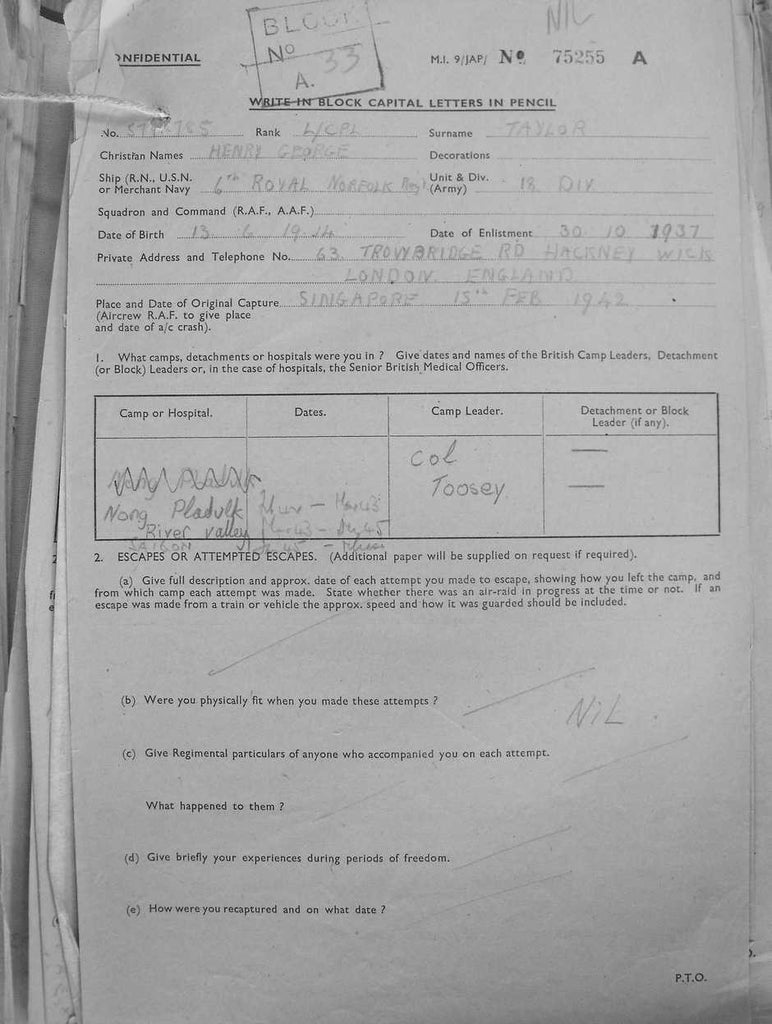 NIL
BLOCK
No 33
A.
ONFIDENTIAL
M.I. 9/JAP/ No. 75255 A
WRITE IN BLOCK CAPITAL LETTERS IN PENCIL
No. Rank L/CPL Surname TAYLOR
Christian Names HENRY GEORGE Decorations
Ship (R.N., U.S.N. Unit & Div.
or Merchant Navy 6th ROYAL NORFOLK Regt (Army) 18 DIV
Squadron and Command (R.A.F., A.A.F.)
Date of Birth 13 6 1914 Date of Enlistment 30 10 1937
Private Address and Telephone No. 63 TROWBRIDGE RD HACKNEY WICK
LONDON ENGLAND
Place and Date of Original Capture SINGAPORE 15th FEB 1942
(Aircrew R.A.F. to give place
and date of a/c crash).
1. What camps, detachments or hospitals were you in ? Give dates and names of the British Camp Leaders, Detachment
(or Block) Leaders or, in the case of hospitals, the Senior British Medical Officers.
Camp or Hospital. Dates. Camp Leader. Detachment or Block
Leader (if any).
Col
Toosey
Nong Pladuk
River Valley
SAIGON
2. ESCAPES OR ATTEMPTED ESCAPES. (Additional paper will be supplied on request if required).
(a) Give full description and approx. date of each attempt you made to escape, showing how you left the camp, and
from which camp each attempt was made. State whether there was an air-raid in progress at the time or not. If an
escape was made from a train or vehicle the approx. speed and how it was guarded should be included.
(b) Were you physically fit when you made these attempts ?
NIL
(c) Give Regimental particulars of anyone who accompanied you on each attempt.
What happened to them ?
(d) Give briefly your experiences during periods of freedom.
(e) How were you recaptured and on what date ?
P.T.O.